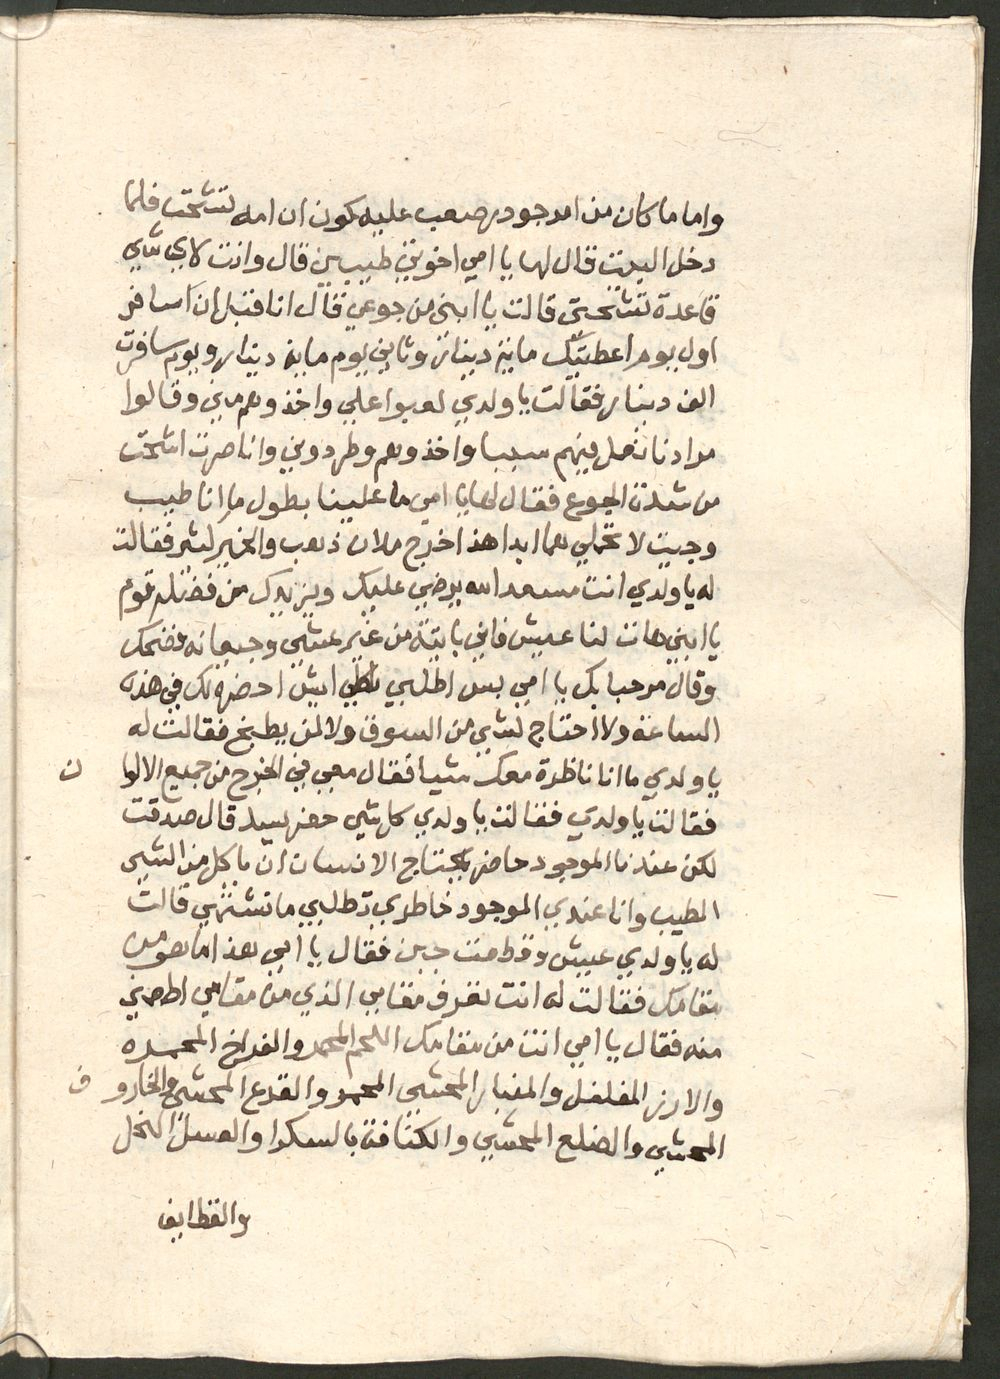 واما ما كان من امر جودر صعب عليه كون ان امه تتشحت فلما
دخل البيت قال لها يا امي اخوتي طيبين قال وانت لاي شي
قاعدة تتشحتي قالت يا ابني من جوعي قال انا قبل ان اسافر
اول يوم اعطيتك ماية دينار وثاني يوم ماية دينار ويوم سافرت
الف دينار فقالت يا ولدي لعبوا علي واخذوهم مني وقالوا
مرادنا نعمل فيهم سببا واخذوهم وطردوني وانا صرت اشحت
من شدة الجوع فقال لها يا امي ما علينا بطول ما انا طيب
وجيت لا تحملي هما ابدا هذا خرج ملان ذهب والخير كثير فقالت
له يا ولدي انت مسعد الله يرضي عليك ويزيدك من فضله قوم
يا ابني هات لنا عيش فاني بايتة من غير عشي وجيعانه فضحك
وقال مرحبا بك يا امي بس اطلبي ايش احضره لك في هذه
الساعة ولا احتاج لشي من السوق ولا لمن يطبخ فقالت له
يا ولدي ما انا ناظرة معك شيا فقال معي في الخرج من جميع الالوا
ن
فقالت يا ولدي فقالت يا ولدي كل شي حضر يسد قال صدقت
لكن عندنا الموجود حاضر يحتاج الانسان ان ياكل من الشي
الطيب وانا عندي الموجود خاطري تطلبي ما تشتهي قالت
له يا ولدي عيش وقطعت جبن فقال يا امي هذا ما هو من
مقامك فقالت له انت تعرف مقامي الذي من مقامي اطعمني
منه فقال يا امي انت من مقامك اللحم المحمر والفراخ المحمره
والارز المفلفل والمنبار المحشى المحمر والقرع المحشي والخارو
ف
المحشي والضلع المحشي والكنافة بالسكر والعسل النحل
والقطايف